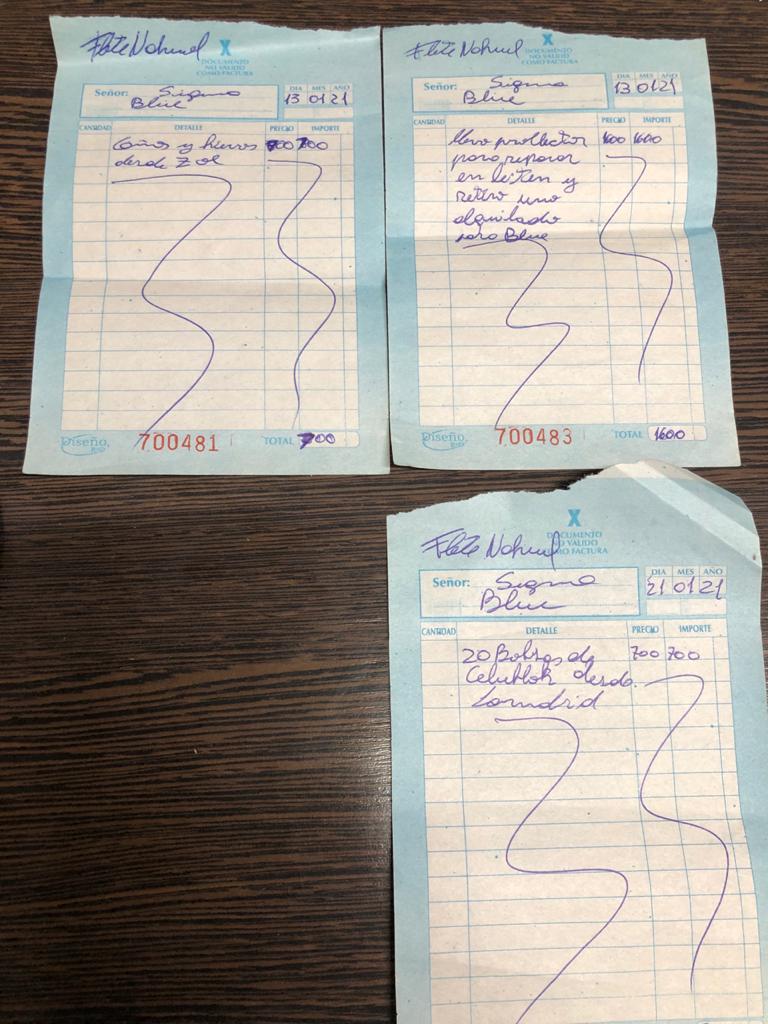 Flete Nahuel
X
DOCUMENTO
NO VALIDO
COMO FACTURA
Señor: Sigma
Blue
DIA MES AÑO
13 01 21
CANTIDAD DETALLE PRECIO IMPORTE
Caños y hierros 700 700
desde
Diseño 700481 TOTAL 700
Flete Nahuel
X
DOCUMENTO
NO VALIDO
COMO FACTURA
Señor: Sigma
Blue
DIA MES AÑO
13 01 21
CANTIDAD DETALLE PRECIO IMPORTE
llevo 1600 1600
para reparar
en y
retiro uno
alquilado
para Blue
Diseño 700483 TOTAL 1600
Flete Nahuel
X
DOCUMENTO
NO VALIDO
COMO FACTURA
Señor: Sigma
Blue
DIA MES AÑO
21 01 21
CANTIDAD DETALLE PRECIO IMPORTE
20 Bolsas de 700 700
desde
Lamadrid